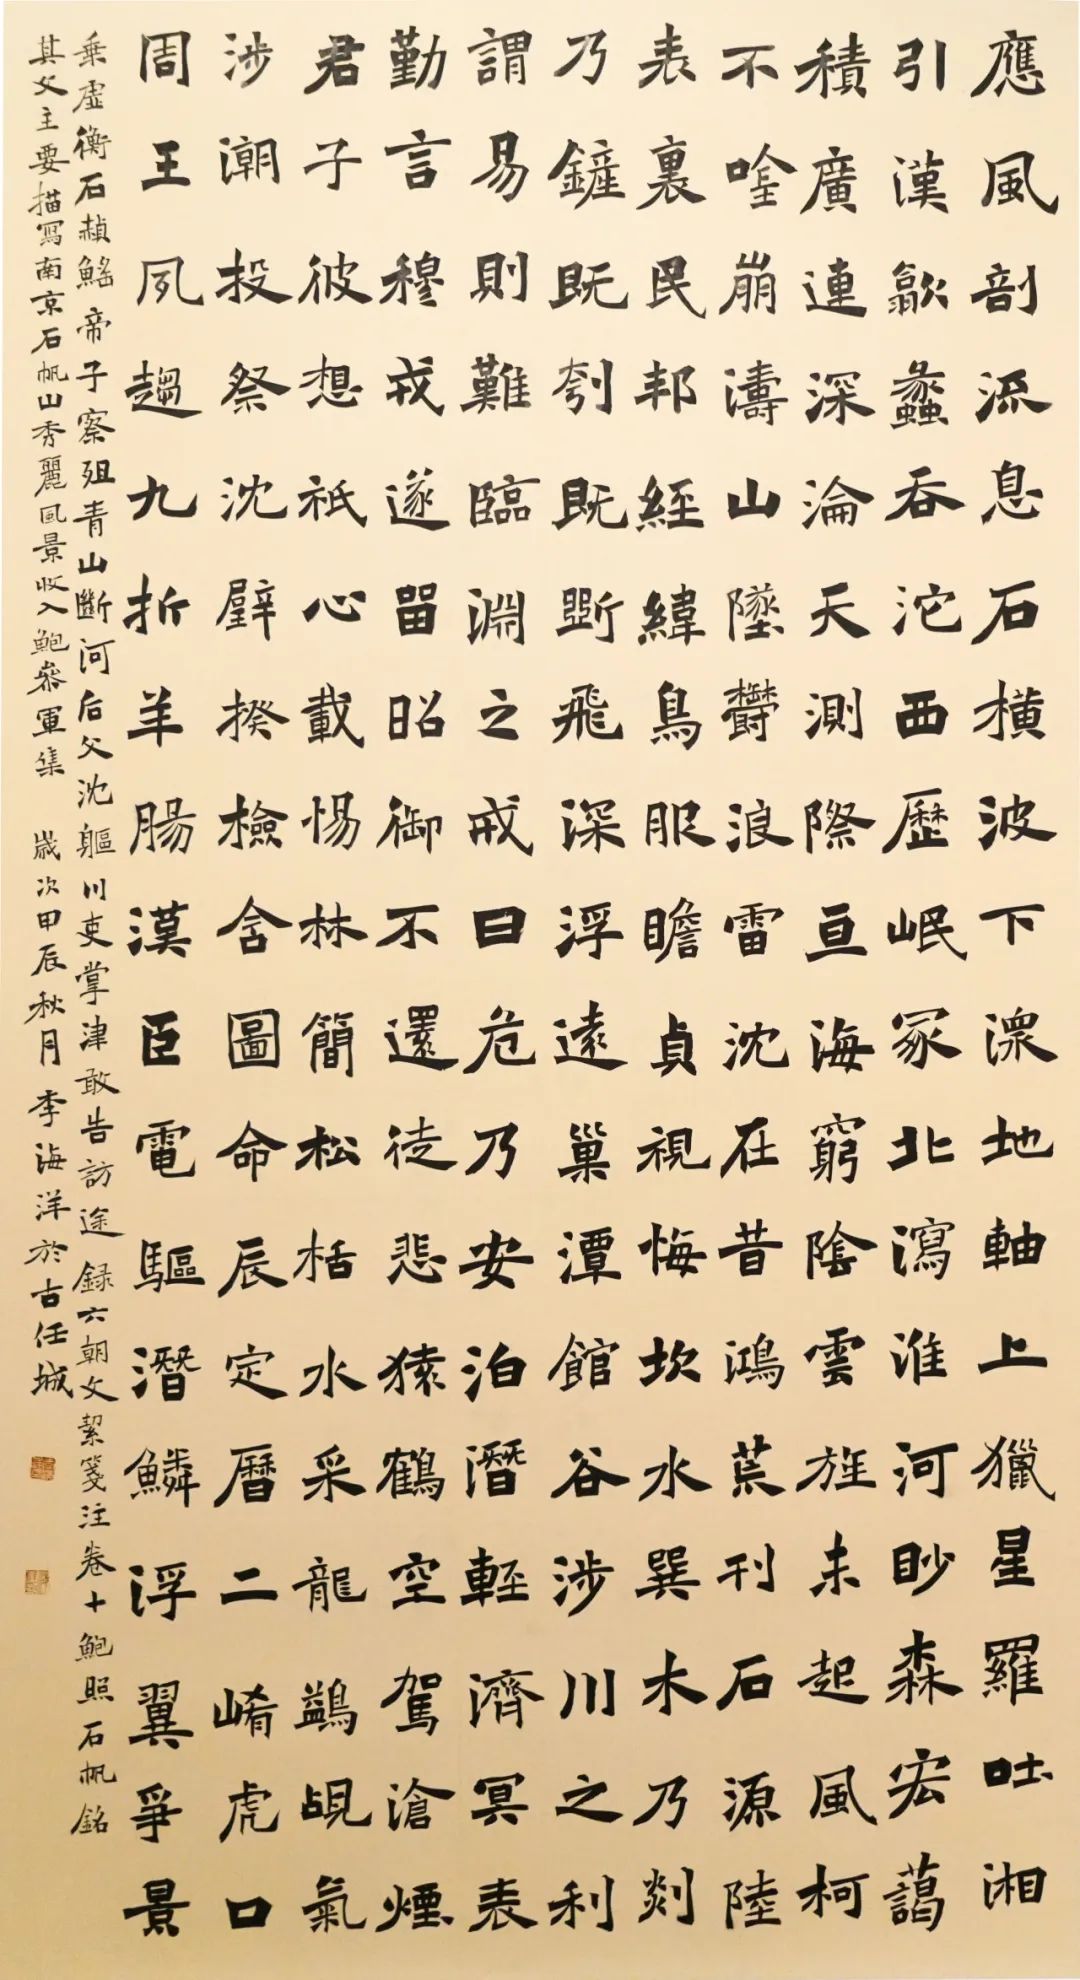 應風剖流息石橫波下潨地軸上獵星羅吐湘
引漢歙蠡吞沱西歷岷冢北瀉淮河眇森宏藹
積廣連深淪天測際亘海窮陰雲旌未起風柯
不吟崩濤山墜鬱浪雷沈在昔鴻荒刊石源陸
表裏民邦經緯鳥服瞻貞視悔坎水巽木乃剡
乃鏟既刳既斲飛深浮遠巢潭館谷涉川之利
謂易則難臨淵之戒曰危乃安泊潛輕濟冥表
勤言穆戎遂留昭御不還徒悲猿鶴空駕滄煙
君子彼想祇心載惕林簡松栝水采龍鷁覘氣
涉潮投祭沈璧揆檢含圖命辰定曆二崤虎口
周王夙趨九折羊腸漢臣電驅潛鱗浮翼爭景
乘虛衡石赬鰩帝子察殂青山斷河后父沈軀川吏掌津敢告訪途 録六朝文絜箋注卷十鮑照石帆銘
其父主要描寫南京石帆山秀麗風景收入鮑參軍集 歲次甲辰秋月李海洋於古任城